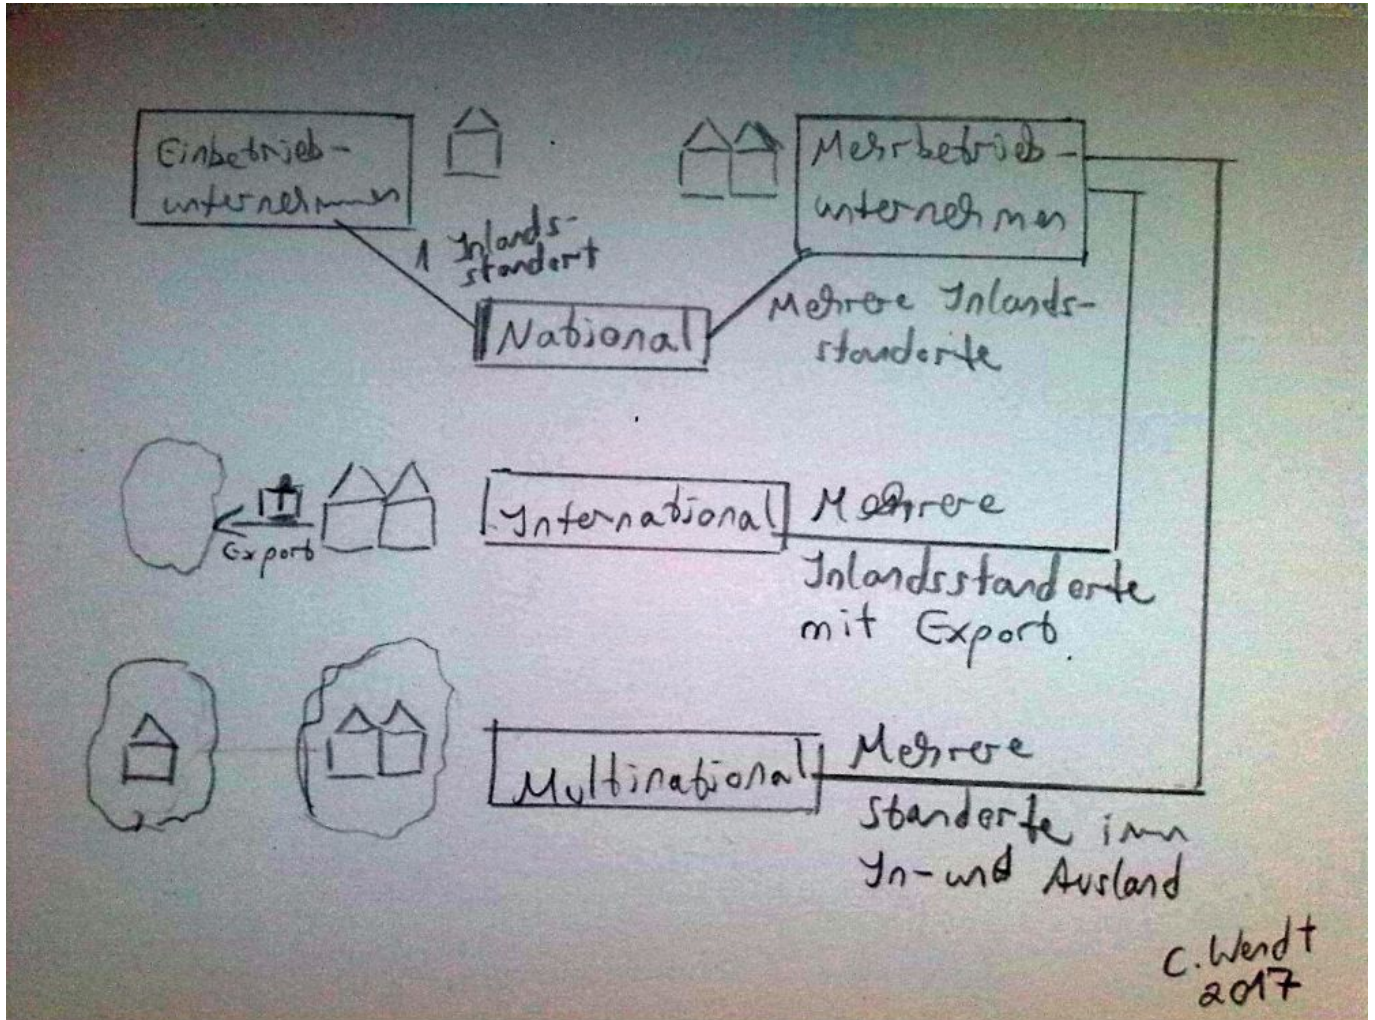 Einbetrieb-
unternehmen
1 Inlands-
standort
Mehrbetrieb-
unternehmen
National
Mehrere Inlands-
standorte
Export
International
Mehrere
Inlandsstandorte
mit Export.
Multinational
Mehrere
Standorte imn
In- und Ausland
C. Wendt
2017